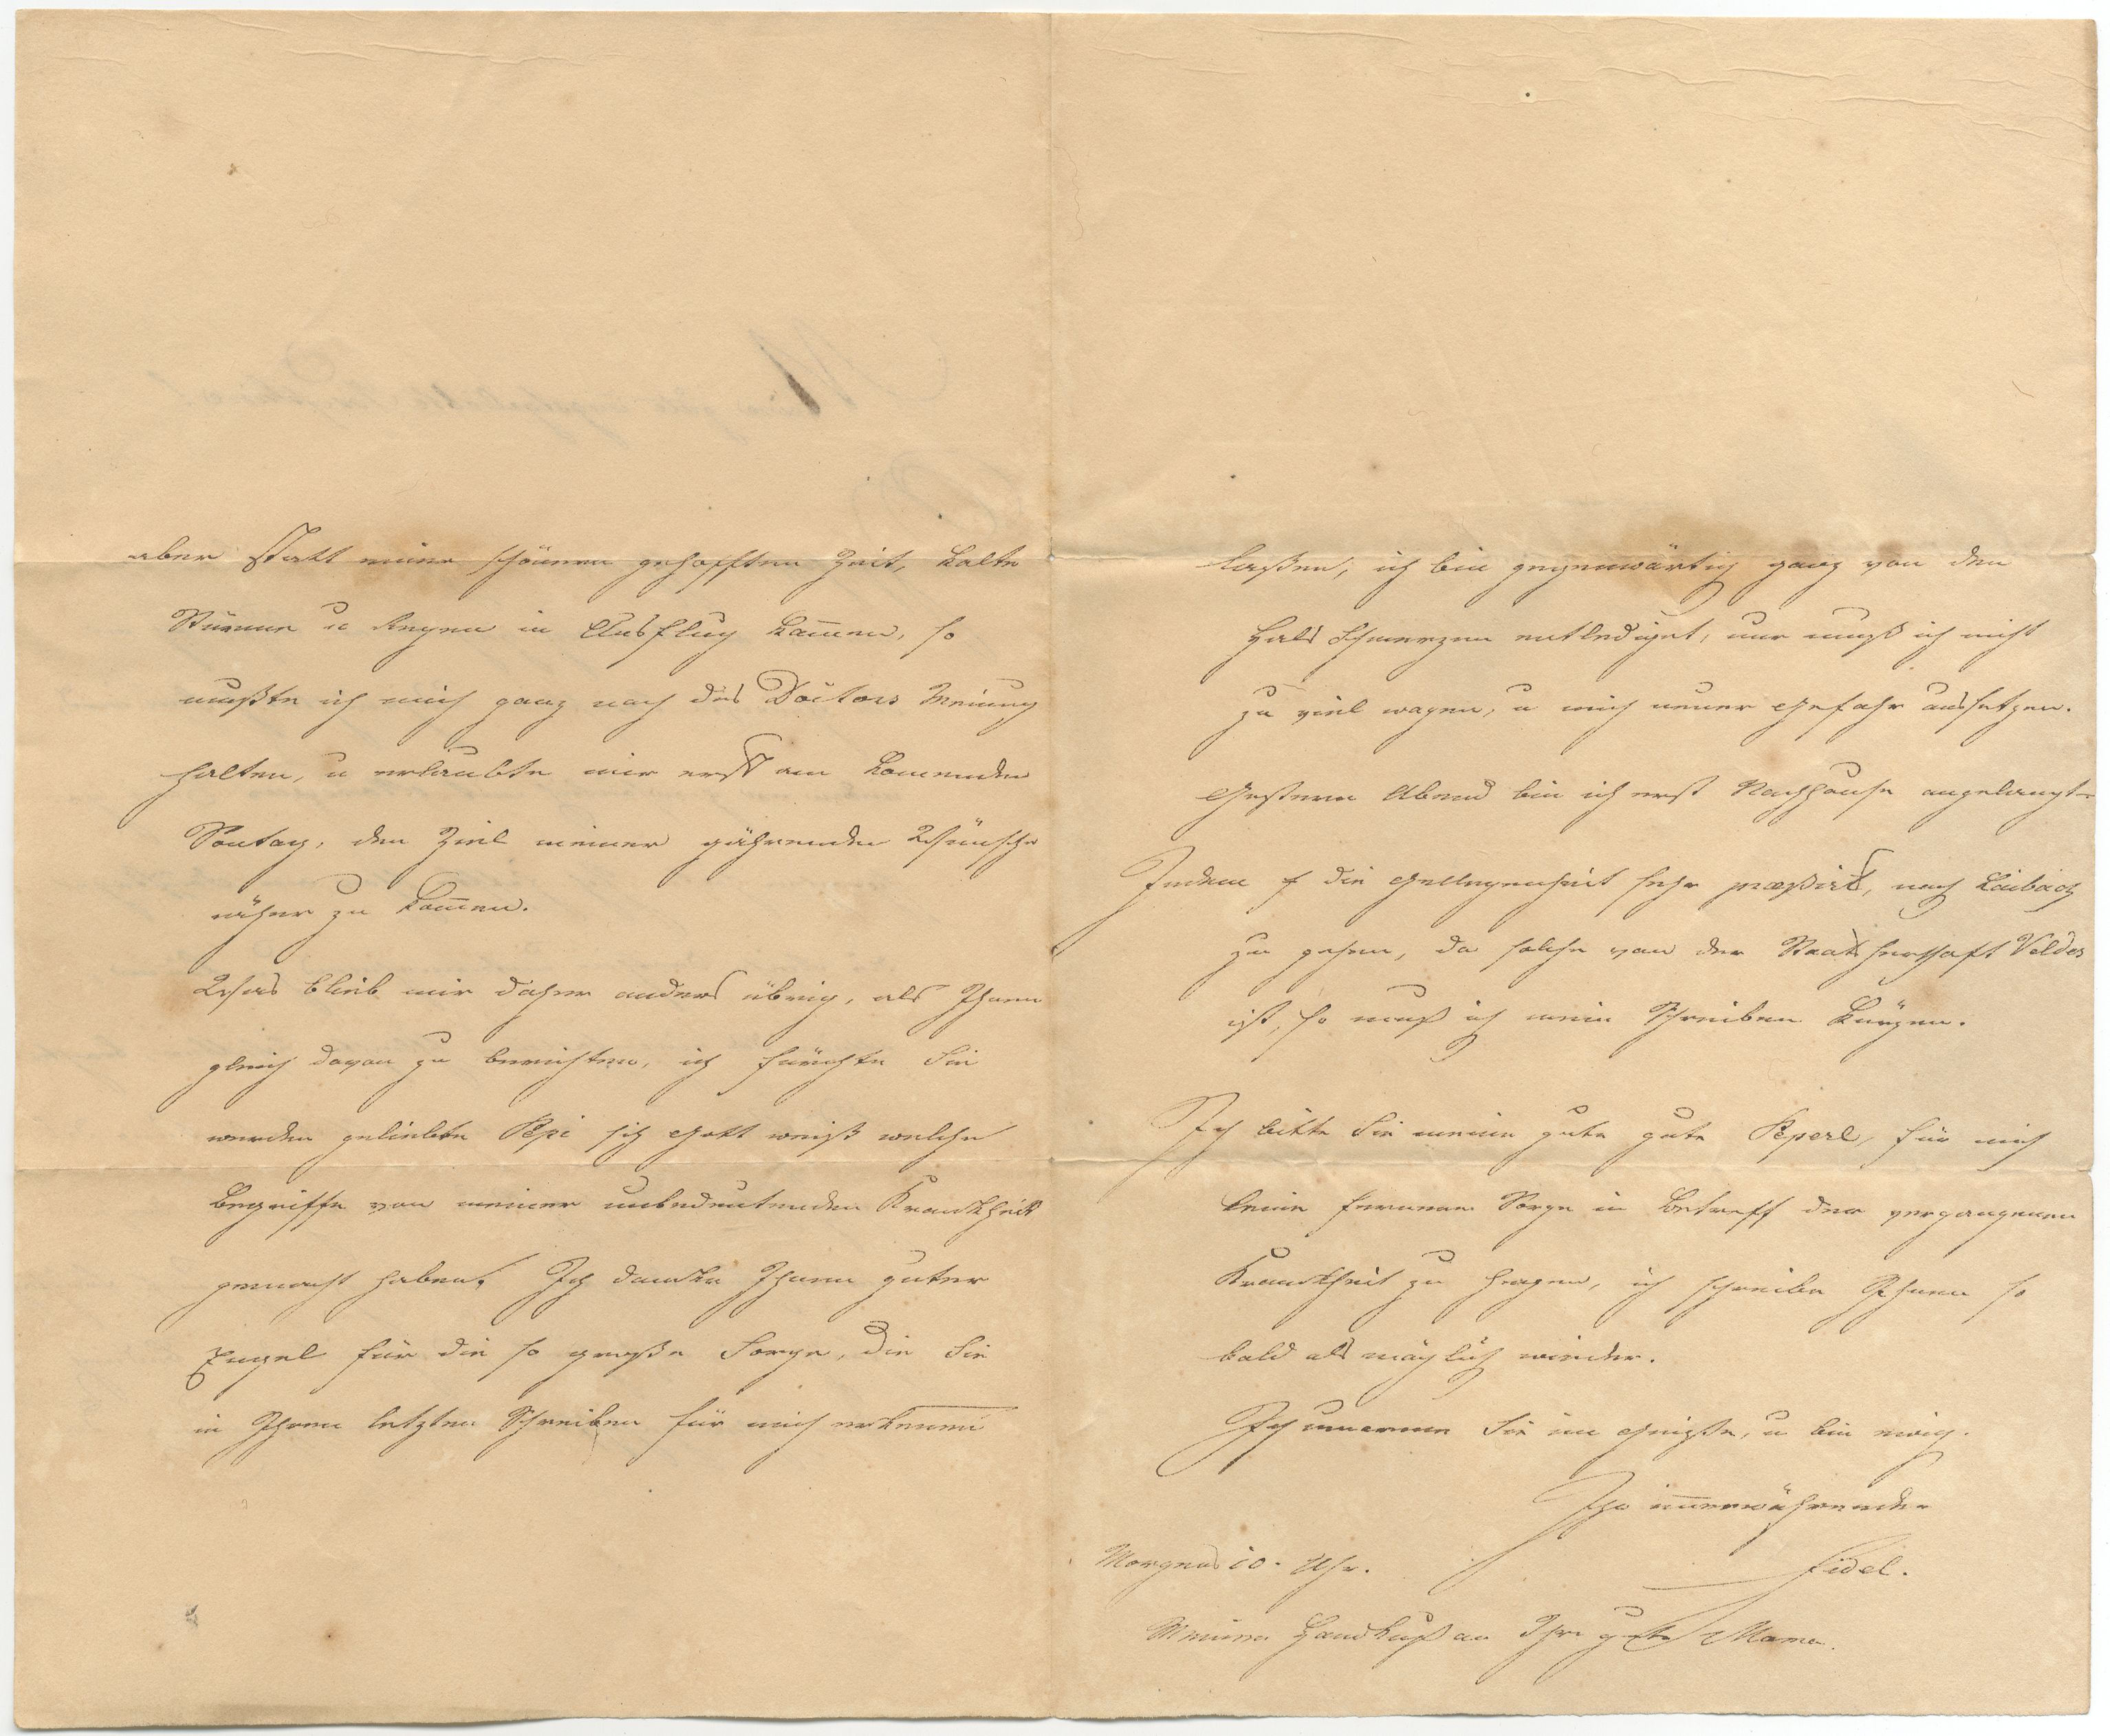 aber statt einer schönen gehofften Zeit, kalte
Stürme u Regen in Ausflug kamen, so
mußte ich mich ganz nach des Doctors Meinung
halten, u erlaubte mir erst am komenden
Sontag, den Ziel meiner gährenden Wünsche
näher zu komen.
Was blieb mir daher anders übrig, als Ihnen
gleich davon zu berichten, ich fürchte Sie
werden geliebte Pepi sich Gott weiß welche
Begriffe von meiner unbedeutenden Krankheit
gemacht haben. Ich danke Ihnen guter
Engel für die so große Sorge, die Sie
in Ihren letzten Schreiben für mich erkennen
laßen, ich bin gegenwärtig ganz von den
Hals Schmerzen entlediget, nur muß ich nicht
zu viel wagen, u mich neuer Gefahr aussetzen.
Gestern Abend bin ich erst Nachhause angelangt
Indem die Gellegenheit sehr preßirt, nach Laibach
zu gehen, da solche von der Staatsherrschaft Veldes
ist, so muß ich mein Schreiben kürzen.
Ich bitte Sie meine gute gute Peperl, für mich
keine fernere Sorge in Betreff der vergangenen
Krankheit zu hegen, ich schreibe Ihnen so
bald als möglich wieder.
Ich umarme Sie im Geiste, u bin ewig.
Ihr imerwährender
Morgens 10. Uhr. Fidel.
Meinen Handkuß an Ihre gute Mama.